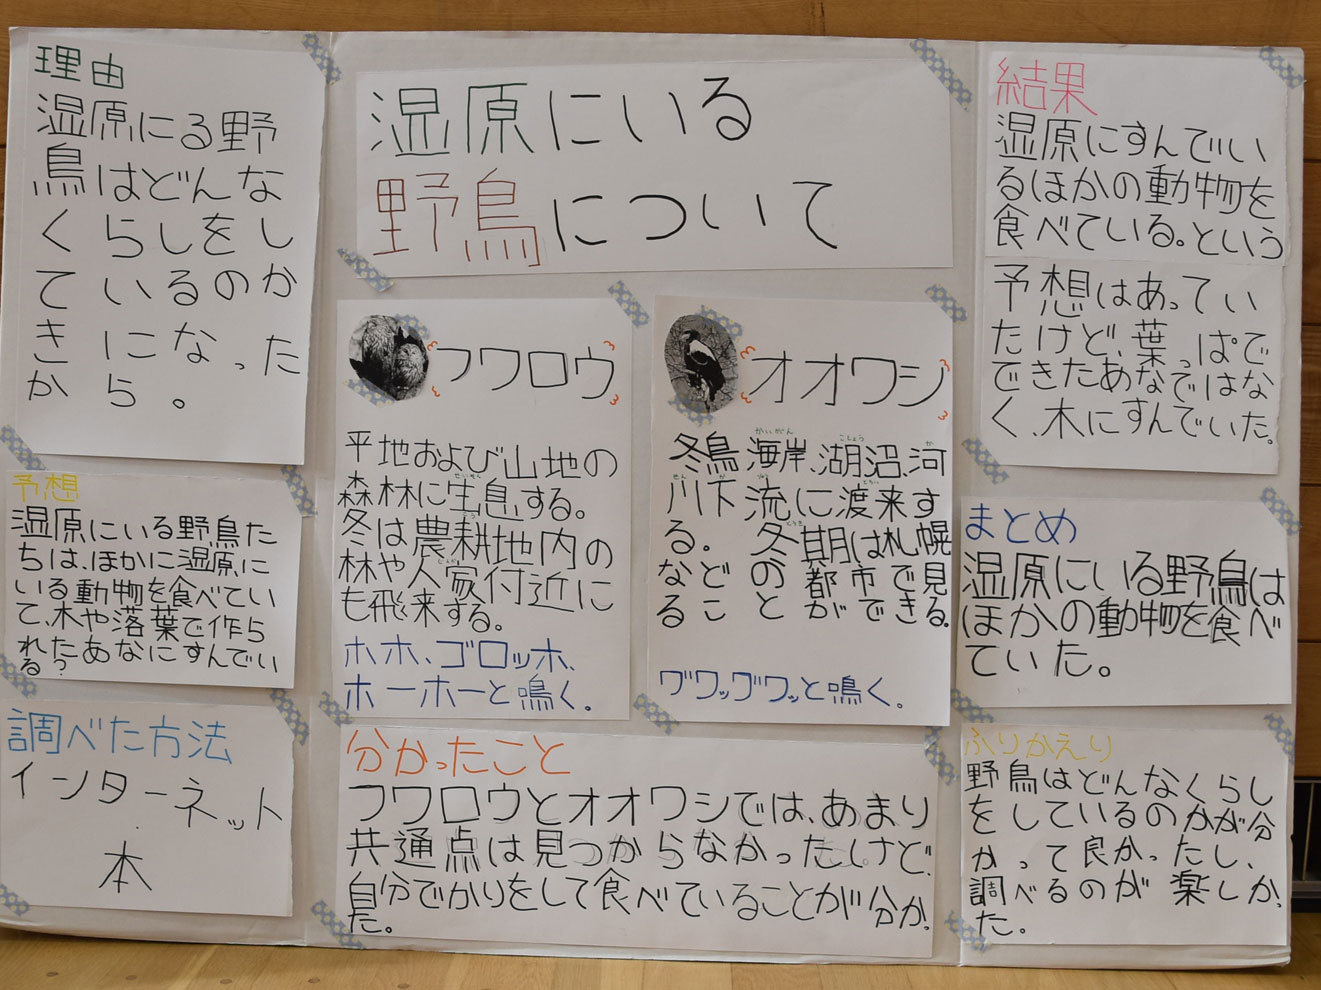 理由
湿原にる野
鳥はどんな
くらしをし
ているのか
きになった
から。
予想
湿原にいる野鳥た
ちは、ほかに湿原に
いる動物を食べてい
て、木や落葉で作ら
れたあなにすんでい
る?
調べた方法
インターネット
本
湿原にいる
野鳥について
フワロウ
平地および山地の
森林に生息する。
冬は農耕地内の
林や人家付近に
も飛来する。
ホホ、ゴロッホ、
ホーホーと鳴く。
オオワシ
かいがん こしょう か
冬鳥海岸、湖沼、河
川下流に渡来す
る。冬期は札幌
などの都市で見
ることができる。
グワッグワッと鳴く。
分かったこと
フワロウとオオワシでは、あまり
共通点は見つからなかったけど、
自分でかりをして食べていることが分かっ
た。
結果
湿原にすんでい
るほかの動物を
食べている。という
予想はあってい
たけど、葉っぱで
できたあなではな
く、木にすんでいた。
まとめ
湿原にいる野鳥は
ほかの動物を食べ
ていた。
ふりかえり
野鳥はどんなくらし
をしているのかが分
かって良かったし、
調べるのが楽しかっ
た。